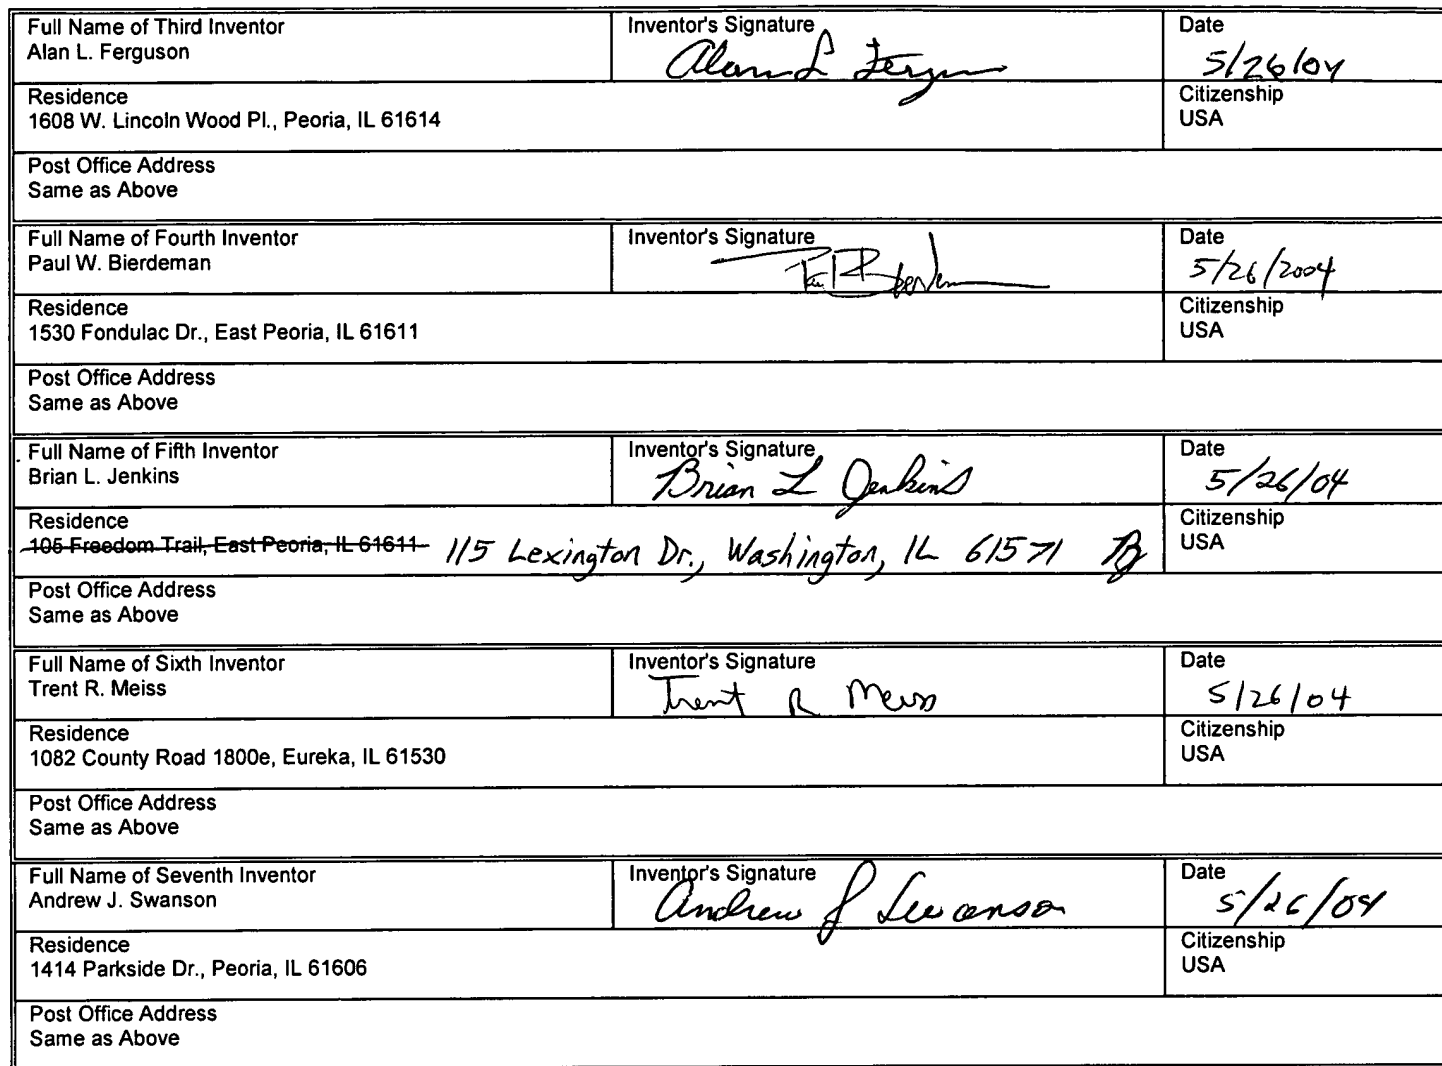 Full Name of Third Inventor
Alan L. Ferguson
Inventor's Signature
Alan L Ferguson
Date
5/26/04
Residence
1608 W. Lincoln Wood Pl., Peoria, IL 61614
Citizenship
USA
Post Office Address
Same as Above
Full Name of Fourth Inventor
Paul W. Bierdeman
Inventor's Signature
Date
5/26/2004
Residence
1530 Fondulac Dr., East Peoria, IL 61611
Citizenship
USA
Post Office Address
Same as Above
Full Name of Fifth Inventor
Brian L. Jenkins
Inventor's Signature
Brian L Jenkins
Date
5/26/04
Residence
105 Freedom Trail, East Peoria, IL 61611 115 Lexington Dr., Washington, IL 61571 BJ
Citizenship
USA
Post Office Address
Same as Above
Full Name of Sixth Inventor
Trent R. Meiss
Inventor's Signature
Trent R Meiss
Date
5/26/04
Residence
1082 County Road 1800e, Eureka, IL 61530
Citizenship
USA
Post Office Address
Same as Above
Full Name of Seventh Inventor
Andrew J. Swanson
Inventor's Signature
Andrew J Swanson
Date
5/26/04
Residence
1414 Parkside Dr., Peoria, IL 61606
Citizenship
USA
Post Office Address
Same as Above